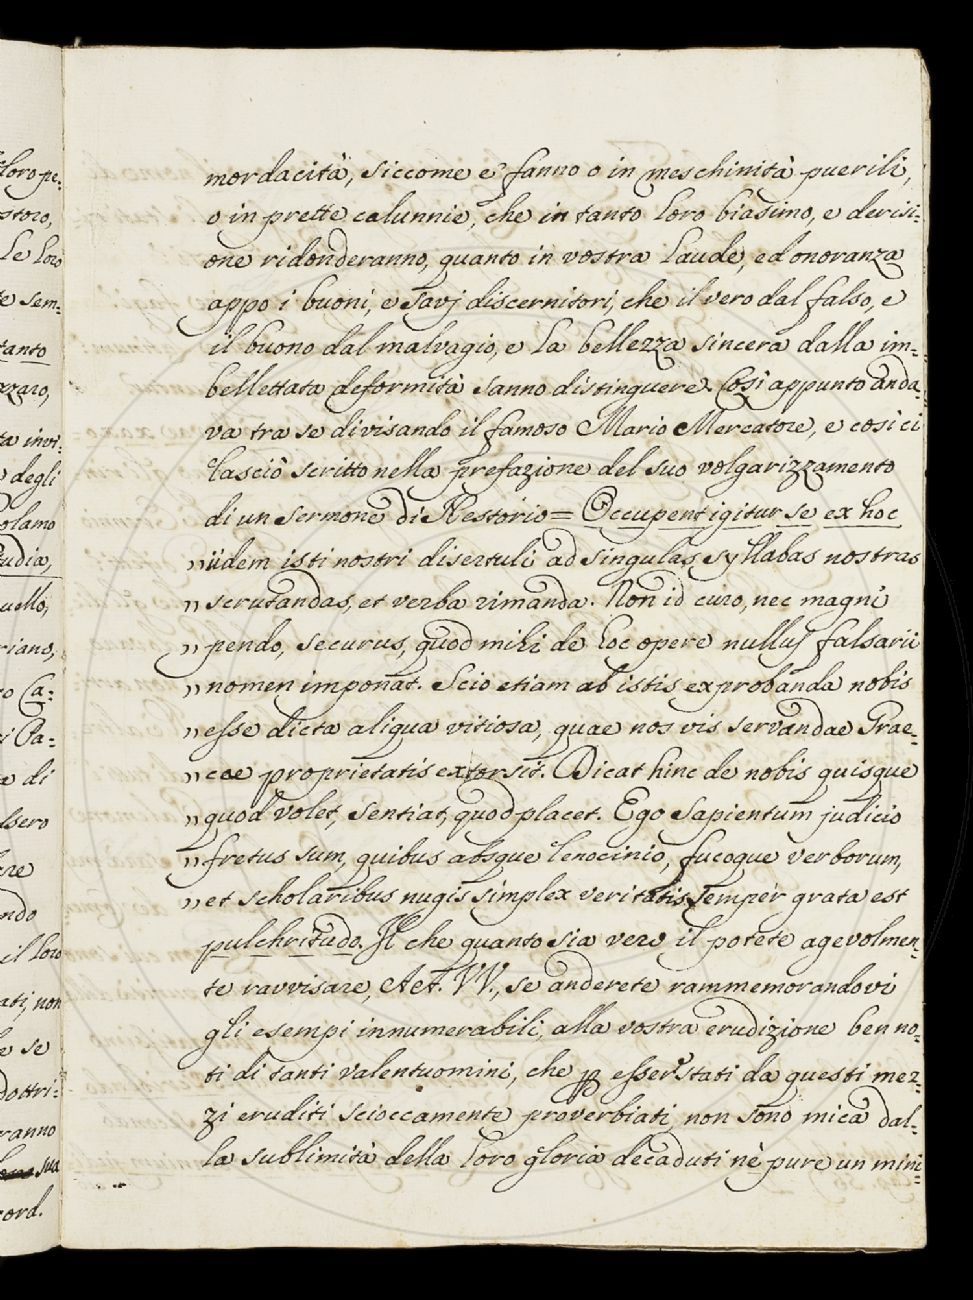 mordacità, siccome e' fanno o in meschinità puerili,
o in prette calunnie, che in tanto loro biasimo, e derisi-
one ridonderanno, quanto in vostra laude, ed onoranza
appo i buoni, e savj discernitori, che il vero dal falso, e
il buono dal malvagio, e la bellezza sincera dalla im-
bellettata deformità sanno distinguere. Così appunto anda-
va tra se divisando il famoso Mario Mercatore, e così ci
lasciò scritto nella prefazione del suo volgarizzamento
di un sermone di Nestorio = Occupent igitur se ex hoc
„ iidem isti nostri disertuli ad singulas syllabas nostras
„ scrutandas, et verba rimanda. Non id curo, nec magni
„ pendo, securus, quod mihi de hoc opere nullus falsarii
„ nomen imponat. Scio etiam ab istis exprobanda nobis
„ esse dicta aliqua vitiosa, quae nos vis servandae Grae-
„ cae proprietatis extorsit. Dicat hinc de nobis quisque
„ quod volet, sentiat, quod placet. Ego sapientum judicio
„ fretus sum, quibus absque lenocinio, fucoque verborum,
„ et scholaribus nugis simplex veritatis semper grata est
pulchritudo. Il che quanto sia vero il potete agevolmen-
te ravvisare, AA. VV., se anderete rammemorandovi
gli esempi innumerabili, alla vostra erudizione ben no-
ti di tanti valentuomini, che p esser stati da questi mez-
zi eruditi scioccamente proverbiati, non sono mica dal-
la sublimità della loro gloria decaduti nè pure un mini-
loro pe-
Le loro
te sem-
tanto
zzaro,
ta invi-
degli
olamo
tudia,
uello,
riano,
ro Ca-
ri Pa-
a di
lsero
ndo
il loro
ati, non
le se
dottri-
ranno
sua
cord.